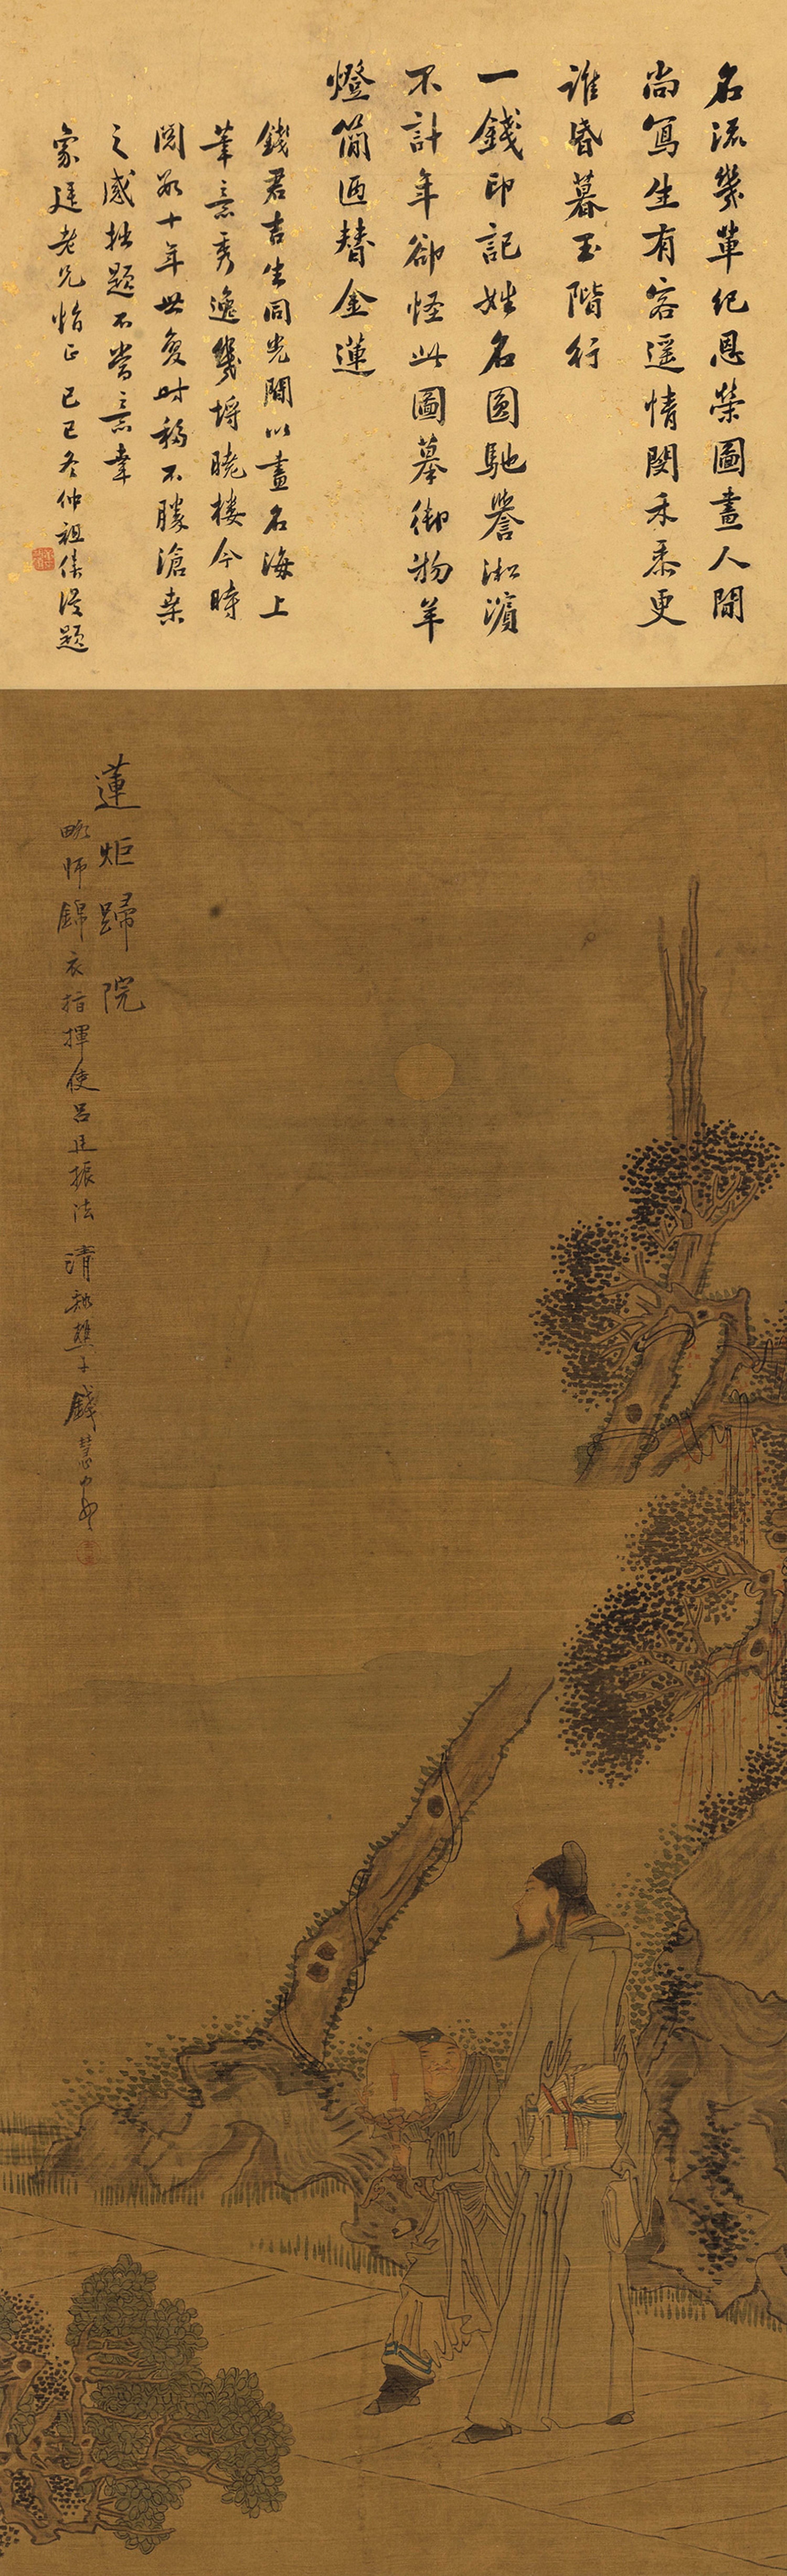 名流幾輩紀恩榮圖畫人間
尚寫生有客遥情閔禾黍更
誰昏暮玉階行
一錢印記姓名圓馳譽淞濱
不計年卻怪此圖摹御物羊
燈簡迺替金蓮
錢君吉生同光間以畫名海上
筆意秀逸幾埒曉樓今時
閱數十年世変时移不勝滄桒
之感拙題不當意幸
象廷老兄怡正己巳冬仲祖
蓮炬歸院
略師錦衣指揮使呂廷振法 清谿樵子錢慧安